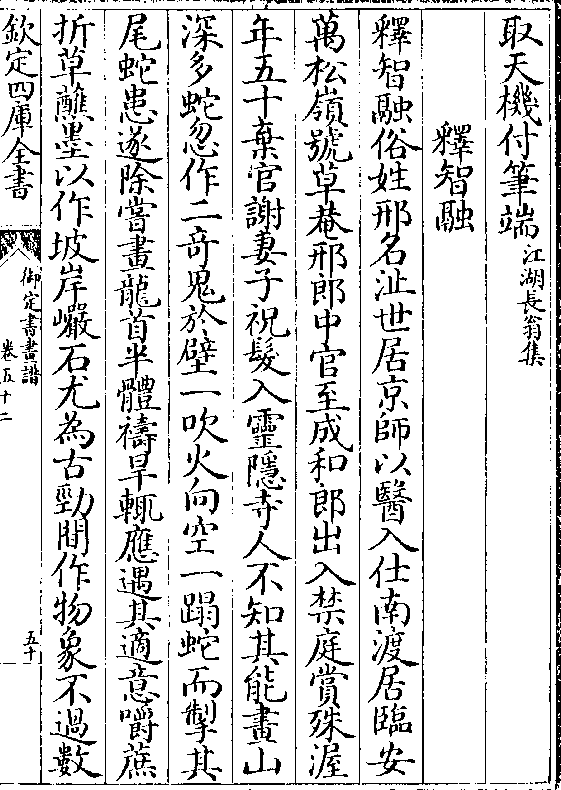 取天機付筆端江湖長翁集
釋智融
釋智融俗姓邢名沚世居京師以醫入仕南渡居臨安
萬松嶺號草菴邢郎中官至成和郎出入禁庭賞殊渥
年五十棄官謝妻子祝髮入靈隱寺人不知其能畫山
深多蛇忽作二奇鬼於壁一吹火向空一蹋蛇而掣其
尾蛇患遂除嘗畫龍首半體禱旱輒應遇其適意嚼蔗
折草蘸墨以作坡岸巖石尤為古勁間作物象不過數
欽定四庫全書
御定書畫譜
卷五十二
五十